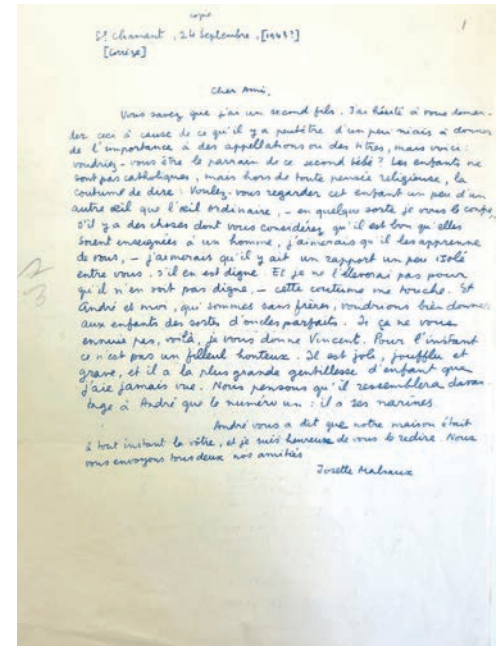 copie
1
St Chamant, 24 Septembre, [1943?]
[Corrèze]
Cher Ami,
Vous savez que j'ai un second fils. J'ai hésité à vous deman-
der ceci à cause de ce qu'il y a peut être d'un peu niais à donner
de l'importance à des appellations ou des titres, mais voici :
voudriez-vous être le parrain de ce second bébé ? Les enfants ne
sont pas catholiques, mais hors de toute pensée religieuse, la
coutume de dire : Voulez-vous regarder cet enfant un peu d'un
autre œil que l'œil ordinaire, – en quelque sorte je vous le confie,
s'il y a des choses dont vous considérez qu'il est bon qu'elles
soient enseignées à un homme, j'aimerais qu'il les apprenne
de vous, – j'aimerais qu'il y ait un rapport un peu isolé
entre vous. S'il en est digne. Et je ne l'élèverai pas pour
qu'il n'en soit pas digne, – cette coutume me touche. Et
André et moi, qui sommes sans frères, voudrions bien donner
aux enfants des sortes d'oncles parfaits. Si ça ne vous
ennuie pas, voilà, je vous donne Vincent. Pour l'instant
ce n'est pas un filleul honteux. Il est joli, joufflu et
grave, et il a la plus grande gentillesse d'enfant que
j'aie jamais vue. Nous pensons qu'il ressemblera davan-
tage à André que le numéro un : il a ses narines.
André vous a dit que notre maison était
à tout instant la vôtre, et je suis heureuse de vous le redire. Nous
vous envoyons tous deux nos amitiés
Josette Malraux